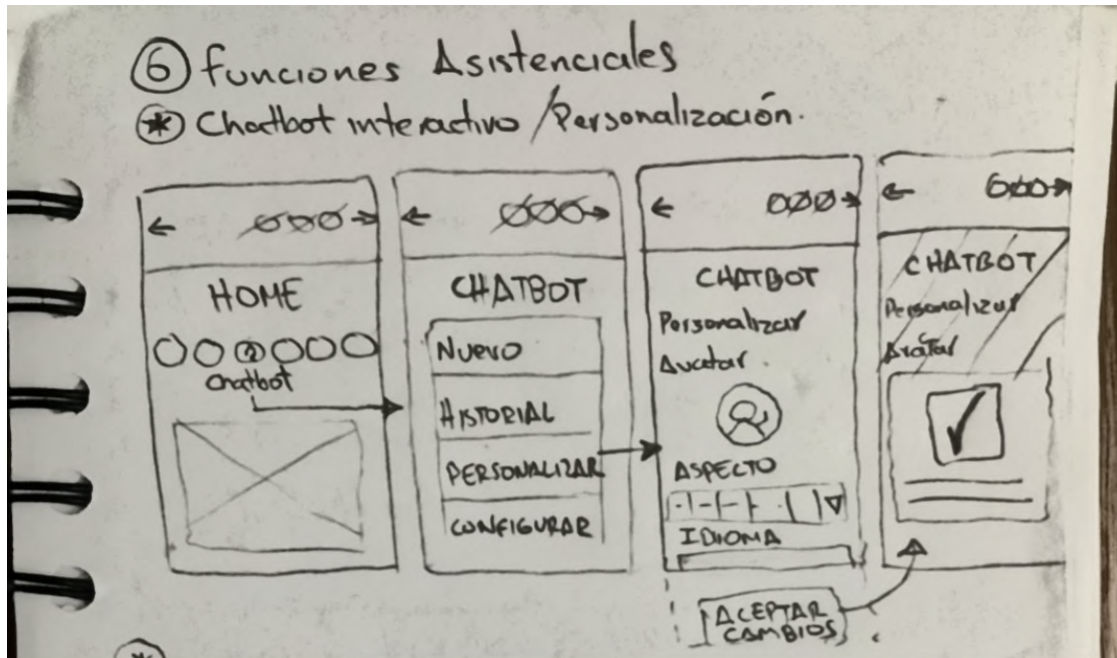 6 Funciones Asistenciales
* Chatbot interactivo / Personalización.
HOME
Chatbot
CHATBOT
NUEVO
HISTORIAL
PERSONALIZAR
CONFIGURAR
CHATBOT
Personalizar
Avatar.
ASPECTO
IDIOMA
ACEPTAR
CAMBIOS
CHATBOT
Personalizar
Avatar
*